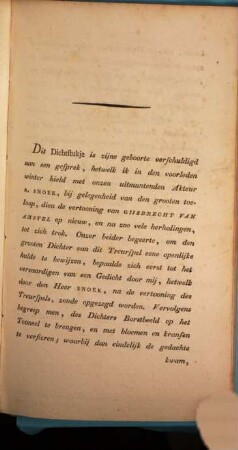 Dit Dichtstukje is zijne geboorte verschuldigd
aan een gesprek, hetwelk ik in den voorleden
winter hield met onzen uitmuntenden Akteur
A. SNOEK, bij gelegenheid van den grooten toe-
loop, dien de vertooning van GIJSBRECHT VAN
AMSTEL op nieuw, en na zoo vele herhalingen,
tot zich trok. Onzer beider begeerte, om den
grooten Dichter van dit Treurspel eene openlijke
hulde te bewijzen, bepaalde zich eerst tot het
vervaardigen van een Gedicht door mij, hetwelk
door den Heer SNOEK, na de vertooning des
Treurspels, zoude opgezegd worden. Vervolgens
begreep men, des Dichters Borstbeeld op het
Tooneel te brengen, en met bloemen en kransen
te versieren; waarbij dan eindelijk de gedachte
kwam,